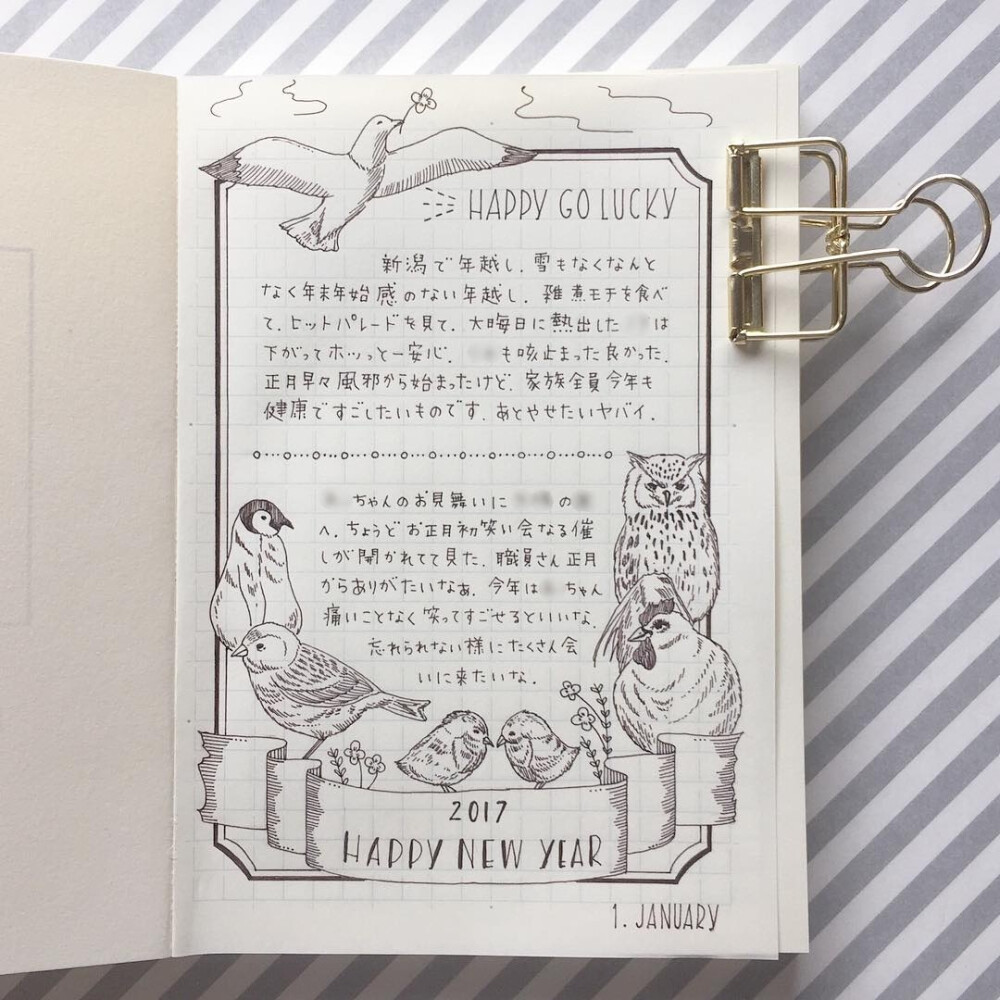 HAPPY GO LUCKY
新潟で年越し。雪もなくなんと
なく年末年始感のない年越し。雑煮モチを食べ
て、ヒットパレードを見て、大晦日に熱出した は
下がってホッっと一安心。 も咳止まった良かった。
正月早々風邪から始まったけど、家族全員今年も
健康ですごしたいものです。あとやせたいヤバイ。
ちゃんのお見舞いに の
へ。ちょうどお正月初笑い会なる催
しが開かれてて見た。職員さん正月
からありがたいなぁ。今年は ちゃん
痛いことなく笑ってすごせるといいな。
忘れられない様にたくさん会
いに来たいな。
2017
HAPPY NEW YEAR
1. JANUARY